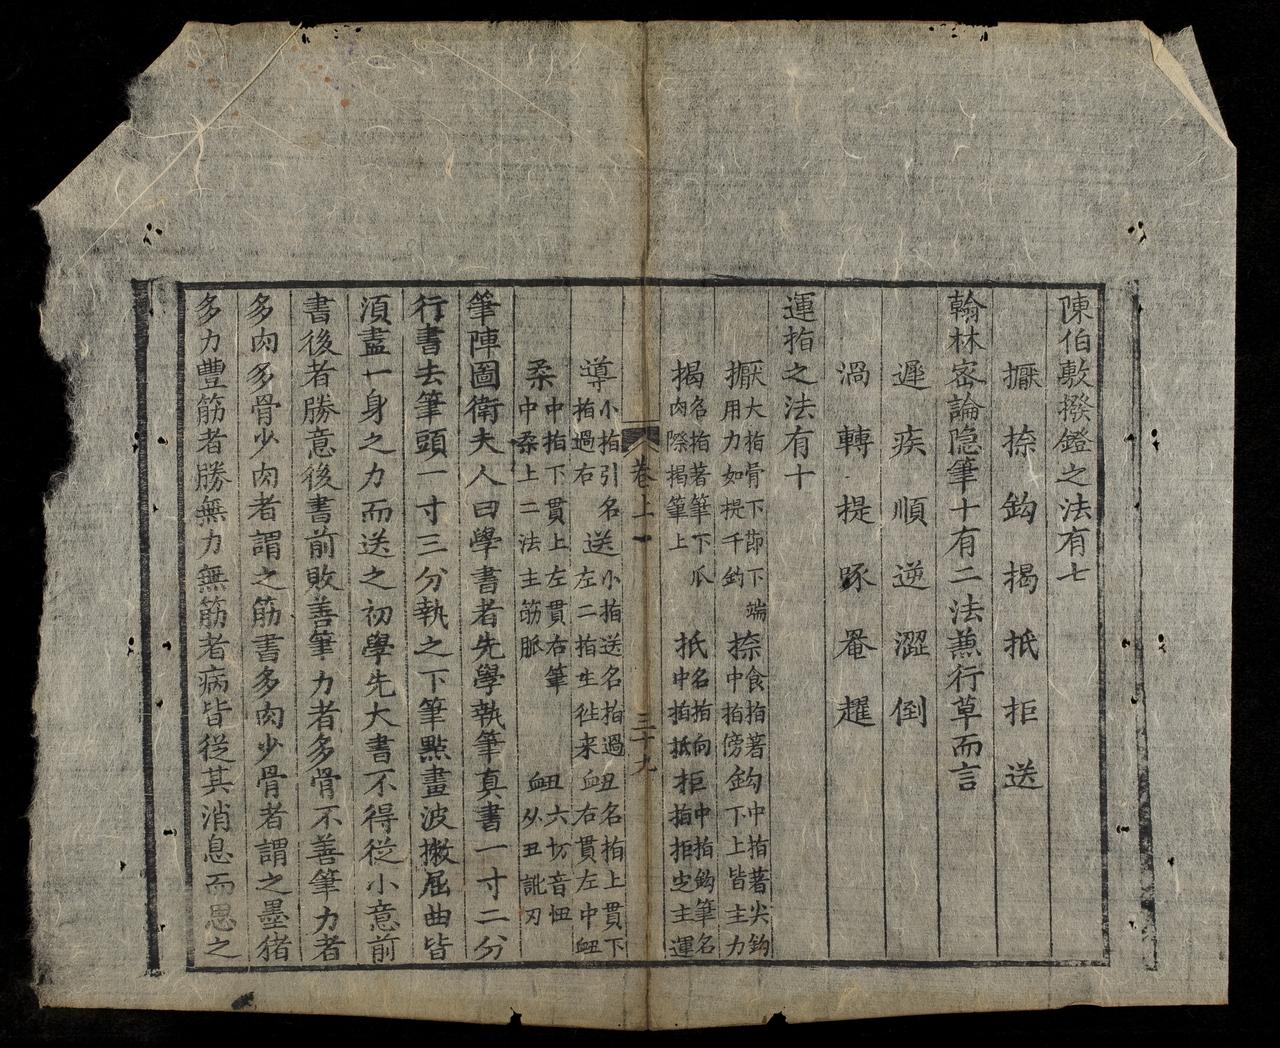 陳伯敷撥鐙之法有七
擫捺鈎揭抵拒送
翰林密論隐筆十有二法蕪行草而言
遲疾順逆澀倒
渦轉提啄罨趯
運指之法有十
擫大指骨下節下端用力如提千鈞 捺食指著中指傍 鈎中指著尖鈎下上皆主力
揭名指著筆下爪肉際揭筆上 抵名指向中指抵 拒中指鈎筆名指拒定主運
導小指引名指過右 送小指送名指過左二指生徃来 丑名指上貫下衄右貫左中衄
桑中指下貫上左貫右筆中桑上二法主筋脈 衄丑六切音忸从丑訛刃
卷上 三十九
筆陣圖衛夫人曰學書者先學執筆真書一寸二分
行書去筆頭一寸三分執之下筆點畫波撇屈曲皆
湏盡一身之力而送之初學先大書不得從小意前
書後者勝意後書前敗善筆力者多骨不善筆力者
多肉多骨少肉者謂之筋書多肉少骨者謂之墨猪
多力豐筋者勝無力無筋者病皆從其消息而思之